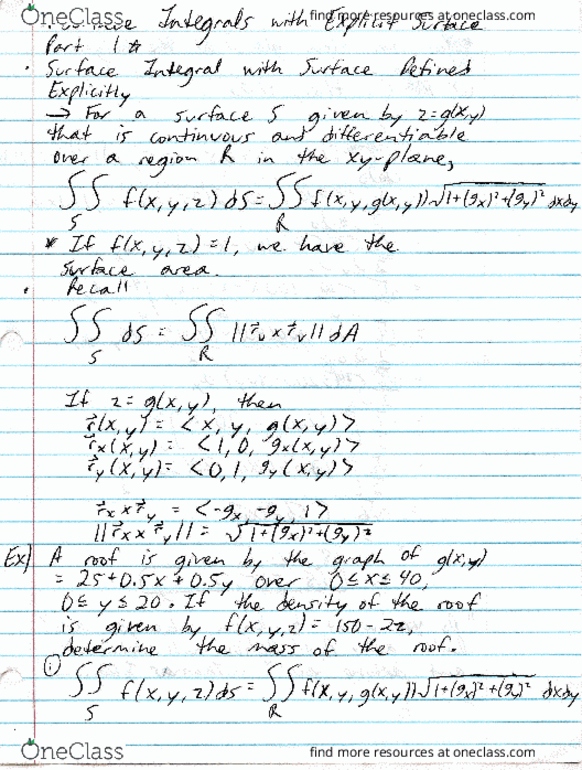 OneClass find more resources at oneclass.com
Integrals with Explicit Surface
Part 1
• Surface Integral with Surface Defined
Explicitly
→ For a surface S given by z=g(x,y)
that is continuous and differentiable
over a region R in the xy-plane,
∫∫ f(x,y,z) dS = ∫∫ f(x,y,g(x,y))√1+(gx)²+(gy)² dxdy
S R
* If f(x,y,z)=1, we have the
surface area.
• Recall
∫∫ dS = ∫∫ ||r⃗u x r⃗v|| dA
S R
If z=g(x,y), then
r⃗(x,y) = <x, y, g(x,y)>
r⃗x(x,y) = <1, 0, gx(x,y)>
r⃗y(x,y) = <0, 1, gy(x,y)>
r⃗x x r⃗y = <-gx, -gy, 1>
||r⃗x x r⃗y|| = √1+(gx)²+(gy)²
Ex] A roof is given by the graph of g(x,y)
= 25+0.5x+0.5y over 0≤x≤40,
0≤y≤20. If the density of the roof
is given by f(x,y,z)=150-2z,
determine the mass of the roof.
①
∫∫ f(x,y,z)dS = ∫∫ f(x,y,g(x,y))√1+(gx)²+(gy)² dxdy
S R
OneClass find more resources at oneclass.com